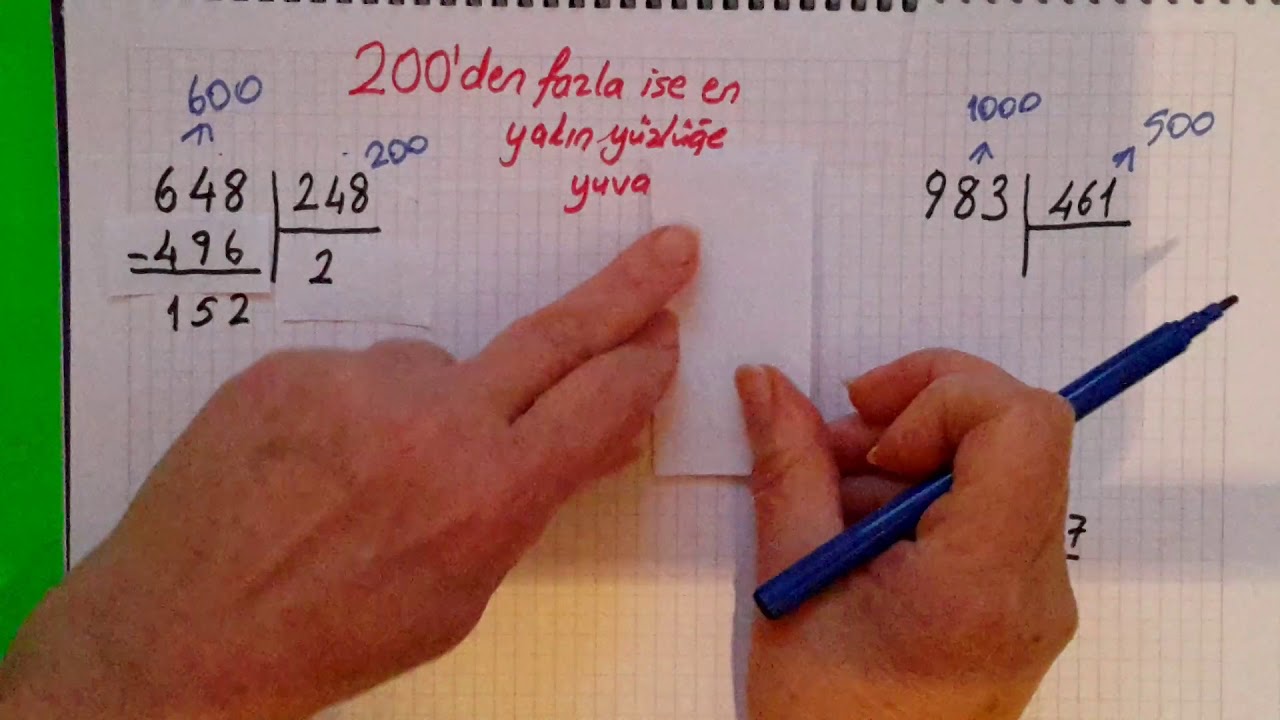 200'den fazla ise en
yakın yüzlüğe
yuva
600
200
648 248
-496 2
152
1000
500
983 461
7